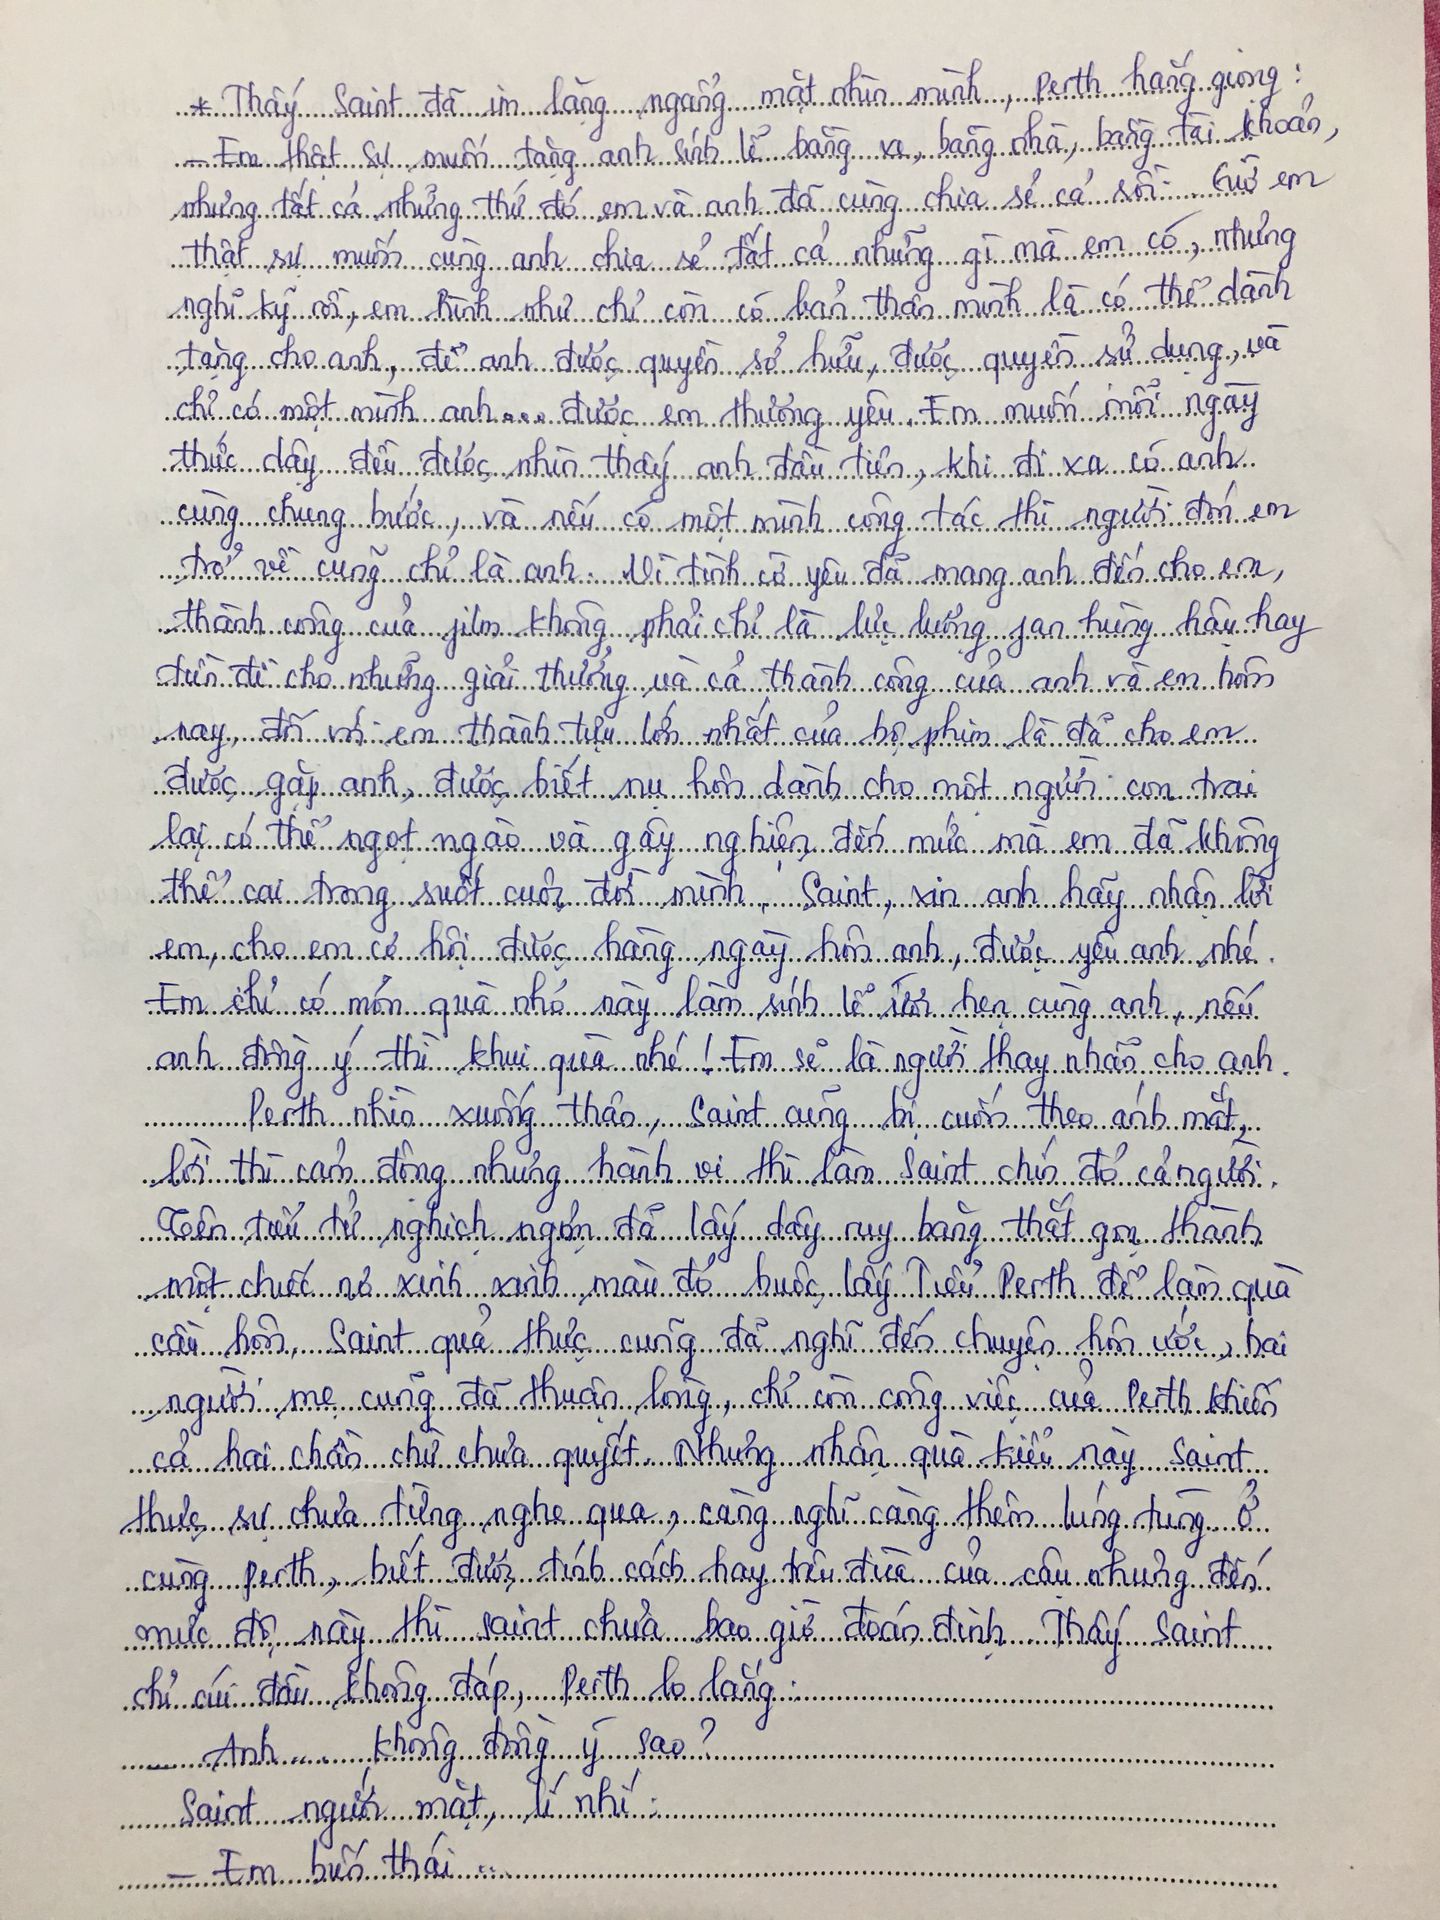 * Thấy Saint đã im lặng ngẩng mặt nhìn mình, Perth hắng giọng:
- Em thật sự muốn tặng anh sính lễ bằng xe, bằng nhà, bằng tài khoản,
nhưng tất cả những thứ đó em và anh đã cùng chia sẻ cả rồi. em
thật sự muốn cùng anh chia sẻ tất cả những gì mà em có, nhưng
nghĩ kỹ rồi, em hình như chỉ còn có bản thân mình là có thể dành
tặng cho anh, để anh được quyền sở hữu, được quyền sử dụng, và
chỉ có một mình anh... được em thương yêu. Em muốn mỗi ngày
thức dậy đều được nhìn thấy anh đầu tiên, khi đi xa có anh
cùng chung bước, và nếu có một mình công tác thì người đón em
trở về cũng chỉ là anh. Vì tình cờ yêu đã mang anh đến cho em,
thành công của film không phải chỉ là lực lượng fan hùng hậu hay
tiền đề cho những giải thưởng và cả thành công của anh và em hôm
nay, đối với em thành tựu lớn nhất của bộ phim là đã cho em
được gặp anh, được biết nụ hôn dành cho một người con trai
lại có thể ngọt ngào và gây nghiện đến mức mà em đã không
thể cai trong suốt cuộc đời mình. Saint, xin anh hãy nhận lời
em, cho em cơ hội được hàng ngày hôn anh, được yêu anh nhé.
Em chỉ có món quà nhỏ này làm sính lễ ước hẹn cùng anh, nếu
anh đồng ý thì khui quà nhé! Em sẽ là người thay nhẫn cho anh.
Perth nhìn xuống thân, Saint cũng bị cuốn theo ánh mắt,
lời thì cảm động nhưng hành vi thì làm Saint chín đỏ cả người.
Tên tiểu tử nghịch ngợm đã lấy dây ruy băng thắt gọn thành
một chiếc nơ xinh xinh màu đỏ buộc lấy Tiểu Perth để làm quà
cầu hôn, Saint quả thực cũng đã nghĩ đến chuyện hôn ước, hai
người mẹ cũng đã thuận lòng, chỉ còn công việc của Perth khiến
cả hai chần chừ chưa quyết. Nhưng nhận quà kiểu này Saint
thực sự chưa từng nghe qua, càng nghĩ càng thêm lúng túng. Ở
cùng Perth, biết được tính cách hay trêu đùa của cậu nhưng đến
mức độ này thì Saint chưa bao giờ đoán định. Thấy Saint
chỉ cúi đầu không đáp, Perth lo lắng:
- Anh.... không đồng ý sao?
Saint ngước mặt, lí nhí:
- Em biến thái...